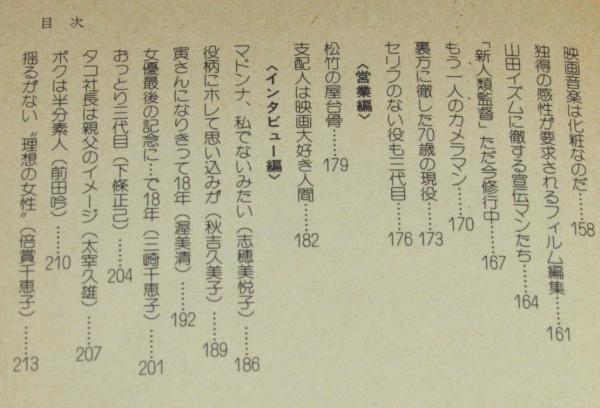 目次
映画音楽は化粧なのだ……158
独得の感性が要求されるフィルム編集……161
山田イズムに徹する宣伝マンたち……164
「新人類監督」ただ今修行中……167
もう一人のカメラマン……170
裏方に徹した70歳の現役……173
セリフのない役も三代目……176
〈営業編〉
松竹の屋台骨……179
支配人は映画大好き人間……182
〈インタビュー編〉
マドンナ、私でないみたい(志穂美悦子)……186
役柄にホレて思い込みが(秋吉久美子)……189
寅さんになりきって18年(渥美清)……192
女優最後の記念に…で18年(三崎千恵子)……201
おっとり三代目(下條正己)……204
タコ社長は親父のイメージ(太宰久雄)……207
ボクは半分素人(前田吟)……210
揺るがない〝理想の女性〟(倍賞千恵子)……213